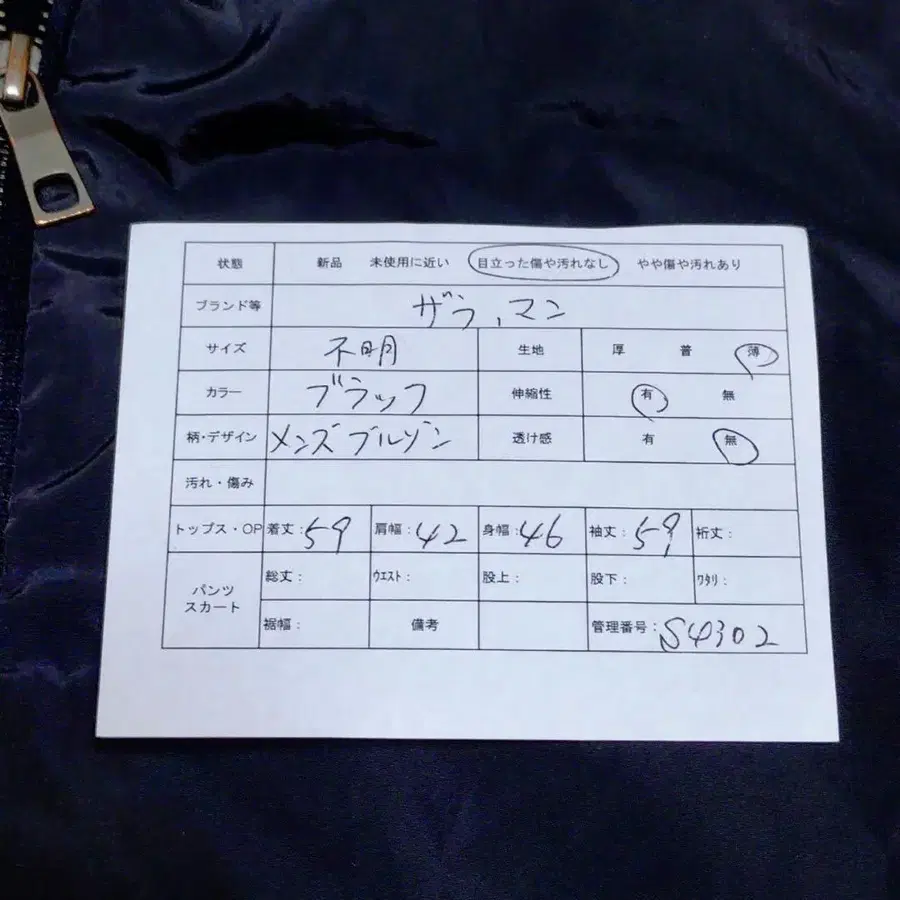 状態 新品 未使用に近い 目立った傷や汚れなし やや傷や汚れあり
ブランド等 ザラ、マン
サイズ 不明 生地 厚 普 薄
カラー ブラック 伸縮性 有 無
柄・デザイン メンズブルゾン 透け感 有 無
汚れ・傷み
トップス・OP 着丈:59 肩幅:42 身幅:46 袖丈:59 裄丈:
パンツ スカート 総丈: ウエスト: 股上: 股下: ワタリ:
裾幅: 備考 管理番号:S4302